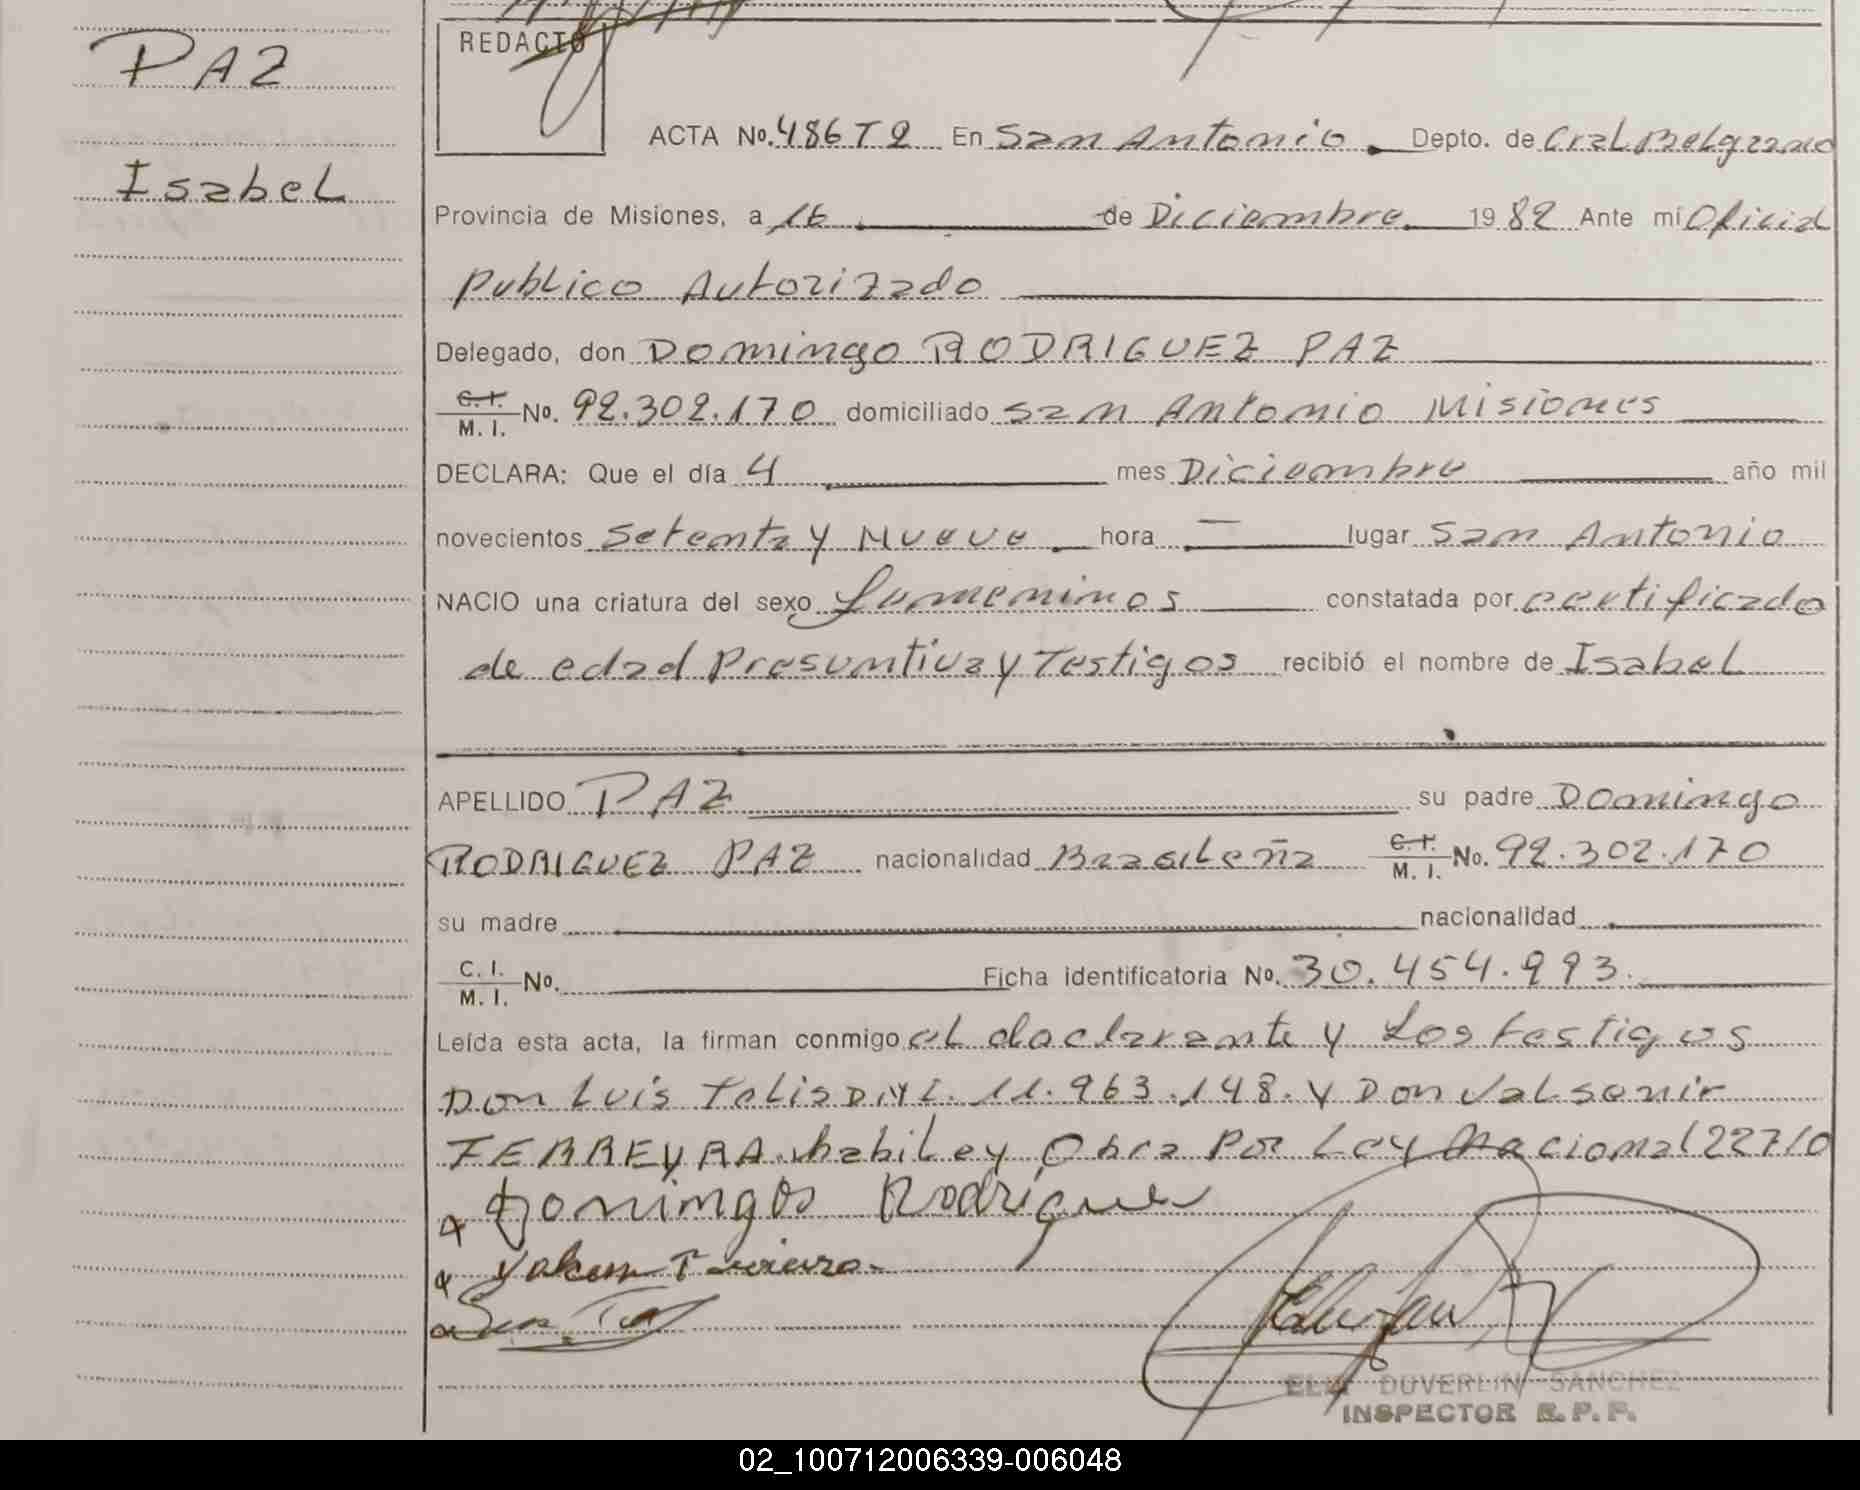 PAZ
Isabel
REDACTO
ACTA No. 486 T 2 En San Antonio Depto. de Gral Belgrano
Provincia de Misiones, a 16 de Diciembre 19 82 Ante mí Oficial
Publico Autorizado
Delegado, don Domingo RODRIGUEZ PAZ
C.I. M. I. No. 92.302.170 domiciliado San Antonio Misiones
DECLARA: Que el día 4 mes Diciembre año mil
novecientos Setenta y Nueve hora — lugar San Antonio
NACIO una criatura del sexo constatada por certificado
de edad Presuntiva y Testigos recibió el nombre de Isabel
APELLIDO PAZ su padre Domingo
RODRIGUEZ PAZ nacionalidad Brasileña C.I. M. I. No. 92.302.170
su madre nacionalidad
C. I. M. I. No. Ficha identificatoria No. 30.454.993.
Leída esta acta, la firman conmigo el declarante y Los testigos
Don Luis D.N.I. 11.963.148. y Don Valsenir
FERREYRA habil ey Obra Por Ley Nacional 22710
Domingos Rodrigue
DUVERLIN SANCHEZ
INSPECTOR R. P. P.
02_100712006339-006048